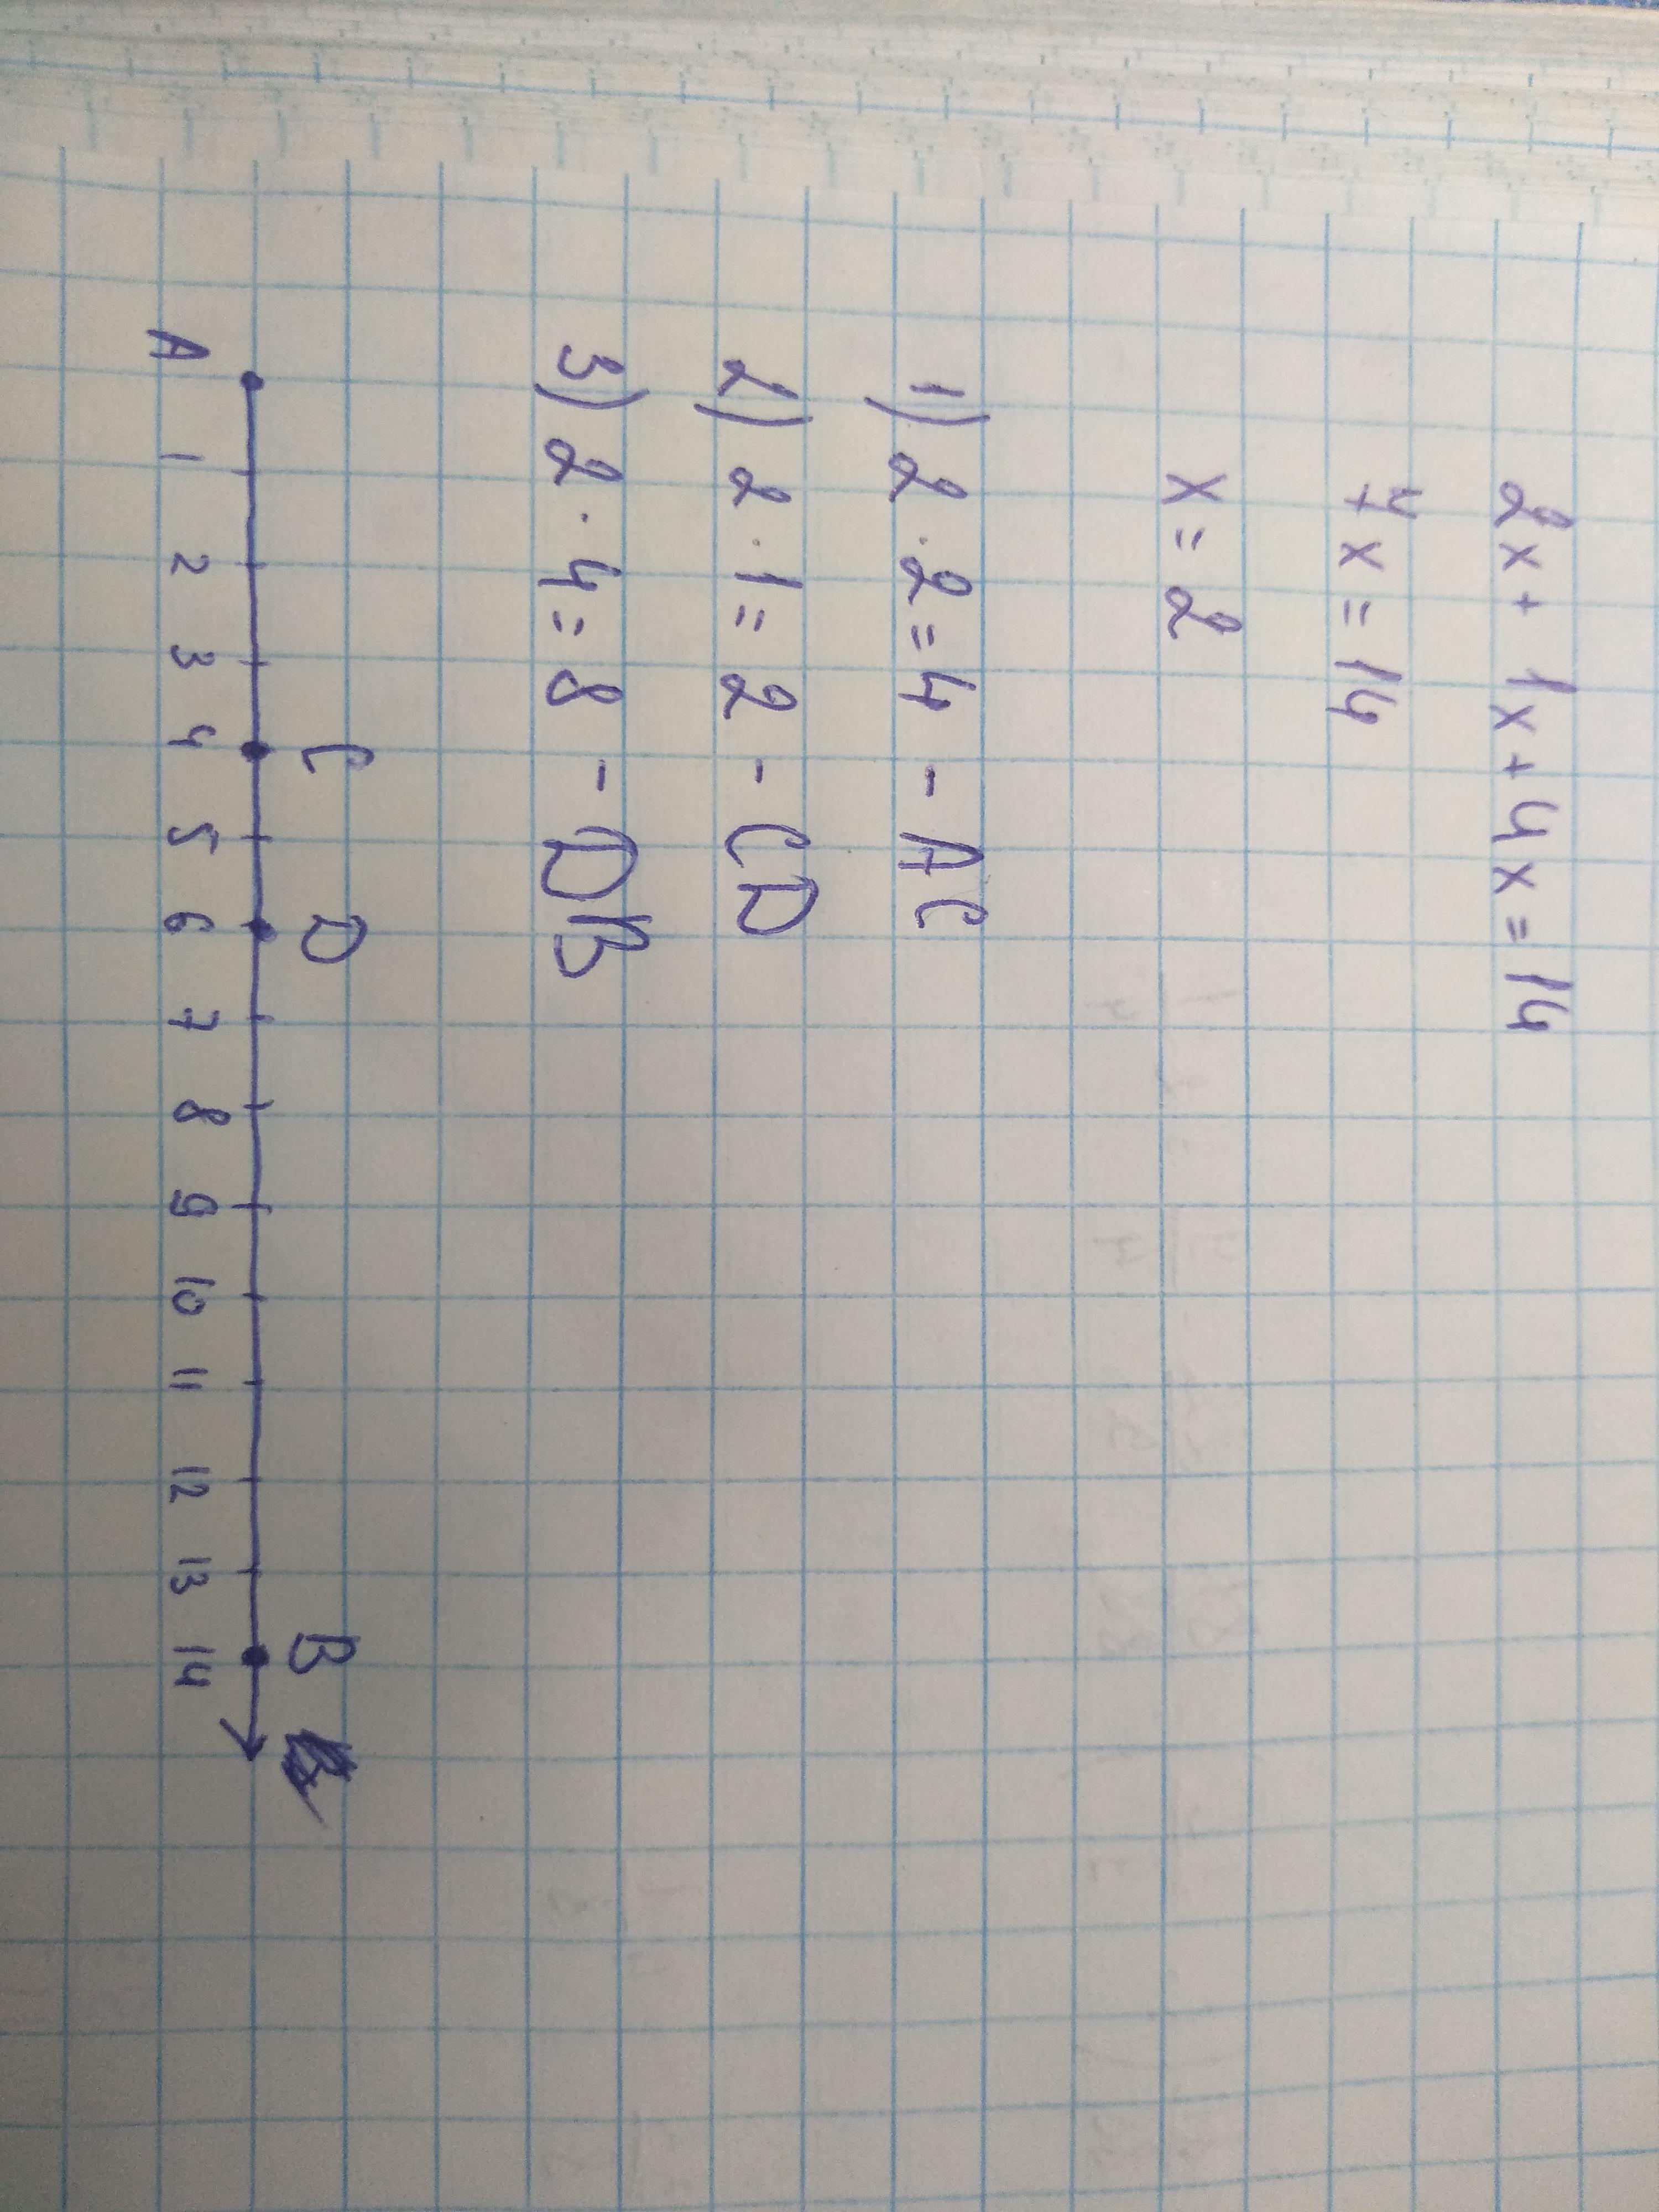 2x + 1x + 4x = 14
7x = 14
x = 2
1) 2 · 2 = 4 - AC
2) 2 · 1 = 2 - CD
3) 2 · 4 = 8 - DB
C D B
A 1 2 3 4 5 6 7 8 9 10 11 12 13 14